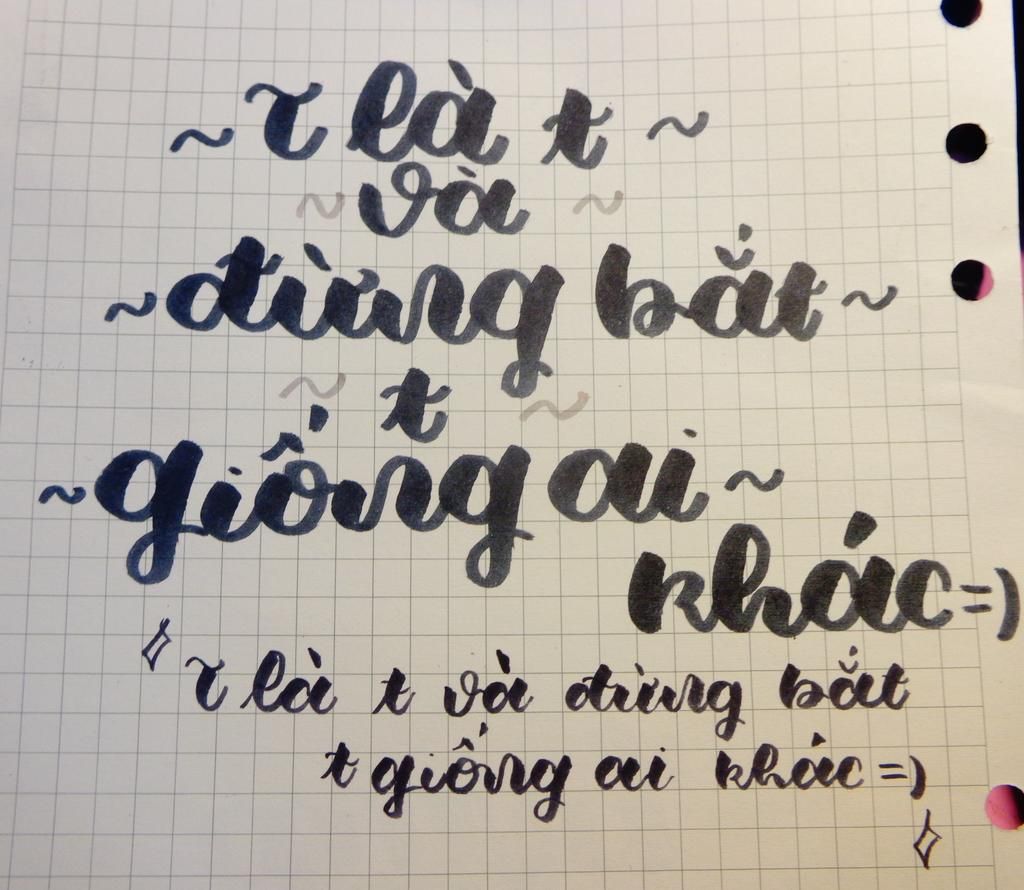 ~ T là t ~
~ và ~
~ đừng bắt ~
~ t ~
~ giống ai ~
khác =)
T là t và đừng bắt
t giống ai khác =)